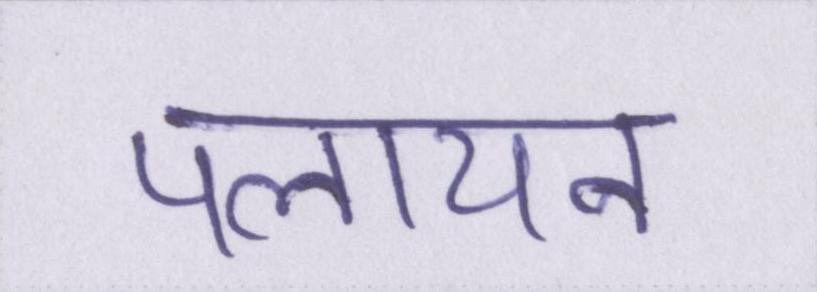 पलायन